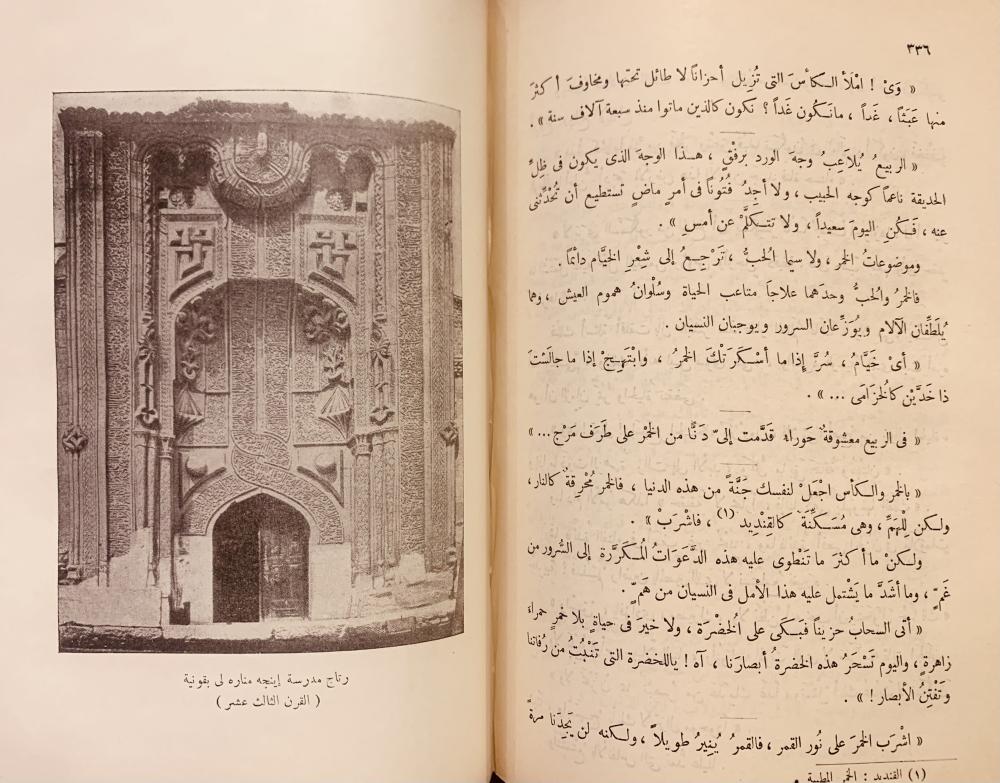 ٣٣٦
« وَىْ ! امْلَأ الكأسَ التى تُزيل أحزانًا لا طائل تحتها ومخاوفَ أكثرَ
منها عَبَثًا ، غَداً ، مانكون غَداً ؟ نكون كالذين ماتوا منذ سبعة آلاف سنة » .
« الربيعُ يُلاَعِبُ وجهَ الورد برفْقٍ ، هذا الوجهَ الذى يكون فى ظِلِّ
الحديقة ناعماً كوجه الحبيب ، ولا أجِدُ فُتُونًا فى أمرٍ ماضٍ تستطيع أن تُحَدِّثَنى
عنه ، فَكُنِ اليومَ سعيداً ، ولا تتكلَّمْ عن أمس » .
وموضوعاتُ الخمر ، ولا سيما الحُبُّ ، تَرْجِعُ إلى شِعْرِ الخيَّام دائمًا .
فالخمرُ والحُبُّ وحدَهما علاجَا متاعب الحياة وسُلْوانُ هموم العيش ، وهما
يُلَطِّفَان الآلام ويُوَزِّعان السرور ويوجبان النسيان .
« أىْ خَيَّامُ ، سُرَّ إذا ما أسْكَرَتْكَ الخمرُ ، وابْتَهِجْ إذا ما جالَسْتَ
ذا خَدَّيْن كالخُزَامَى ... » .
« فى الربيع معشوقةٌ حَوراءُ قَدَّمت إلىّ دَنًّا من الخمْر على طَرَف مَرْج ... »
« بالخمر والكأس اجْعَلْ لنفسك جَنَّةً من هذه الدنيا ، فالخمر مُحْرِقةٌ كالنار ،
ولكن لِلْهَمِّ ، وهى مُسَكِّنَةٌ كالقِنْدِيد (١) ، فاشْرَبْ » .
ولكنْ ما أكثرَ ما تَنْطوى عليه هذه الدَّعَوَاتُ المُكَرَّرة إلى السُّرور من
غَمّ ، وما أشَدَّ ما يَشْتمل عليه هذا الأمل فى النسيان من هَمّ .
« أتى السحابُ حزينًا فَبَكَى على الخُضْرَة ، ولا خيرَ فى حياةٍ بلا خمرٍ حمراءَ
زاهرةٍ ، واليوم تَسْحَرُ هذه الخضرةُ أبصارَنا ، آه ! ياللخضرة التى تَنْبُتُ من رُفاتنا
وتَفْتِنُ الأبصار ! » .
« اشْرَب الخمرَ على نُور القمر ، فالقمرُ يُنِيرُ طويلاً ، ولكنه لن يَجِدَنا مرةً
(١) القنديد : الخمر المطيبة .
رتاج مدرسة إينجه مناره لى بقونية
( القرن الثالث عشر )